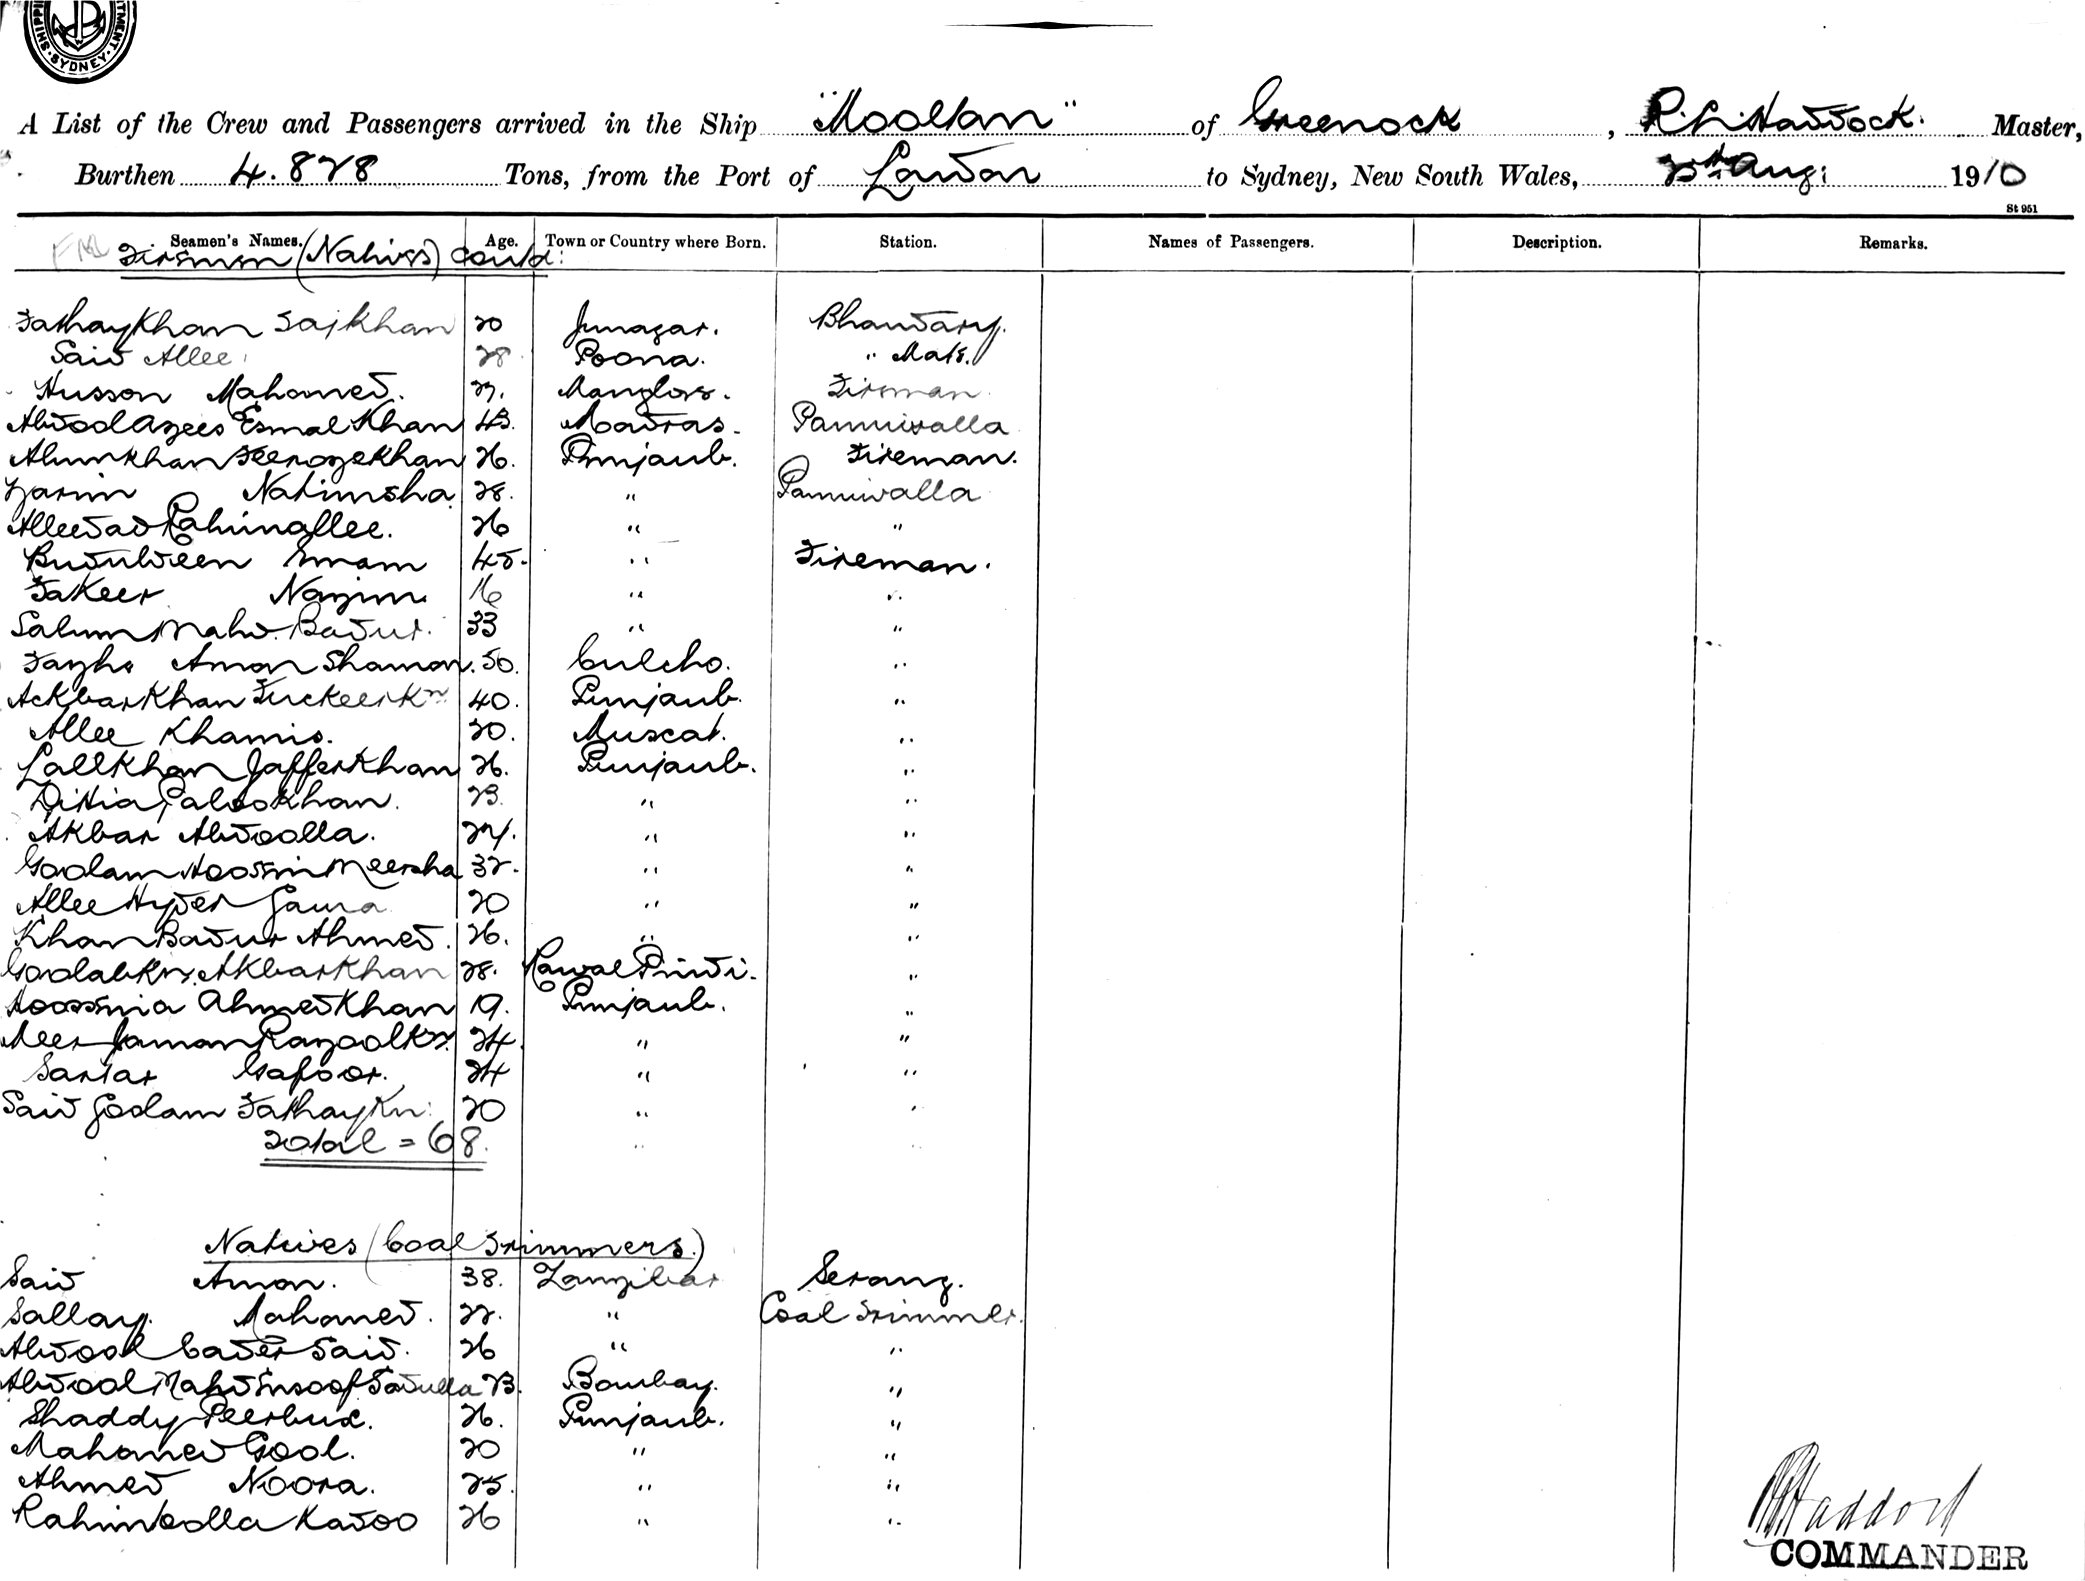 SHIPPING SYDNEY
A List of the Crew and Passengers arrived in the Ship "Mooltan" of Greenock, R. L. Haddock. Master,
Burthen 4.828 Tons, from the Port of London to Sydney, New South Wales, 25th Aug: 1910
St 951
Seamen's Names. Age. Town or Country where Born. Station. Names of Passengers. Description. Remarks.
Firemen (Natives) Contd:
Fathaykhan Saikhan 20 Junagar. Bhandary.
Said Allee 28 Poona. " Mate.
Husson Mahomed. 27. Manglore. Fireman
Abdool Azees Esmal Khan 43. Madras. Panniwalla
Alumkhan Feerozekhan 26. Punjaub. Fireman.
Zarin Natimsha 28. " Panniwalla
Alleedad Rahimallee. 26 " "
Budruldeen Imam 45. " Fireman.
Fakeer Nazim 16 " "
Salum Mahd. Badur. 33 " "
Aman Shaman. 50. Culcho. "
Ackbarkhan Fuckeerkn 40. Punjaub. "
Allee Khamis. 20. Muscat. "
Lallkhan Jafferkhan 26. Punjaub. "
Dittia 23. " "
Akbar Abdoolla. 24. " "
Goolam Hoosein Meersha 32. " "
Allee Hyder Gama 20 " "
Khan Badur Ahmed. 26. " "
Goolabkn. Akbarkhan 28. Rawal Pindi. "
Hoosenia Ahmedkhan 19. Punjaub. "
Meer Jaman Razoolkn. 24. " "
Sardar Gafoor. 24 " "
Said Goolam Fathaykn: 20 " "
Total = 68. " "
Natives (Coal Trimmers.)
Said Amon. 38. Zanzibar Serang.
Sallay. Mahomed. 22. " Coal Trimmer.
Abdool Cader Said. 26 " "
Abdool Mahd Esoof Sadulla 23. Bombay. "
Shaddy Peerbux. 26. Punjaub. "
Mahomed Gool. 20 " "
Ahmed Noora. 25. " "
Rahimtoolla Kadoo 26 " "
R L Haddock
COMMANDER